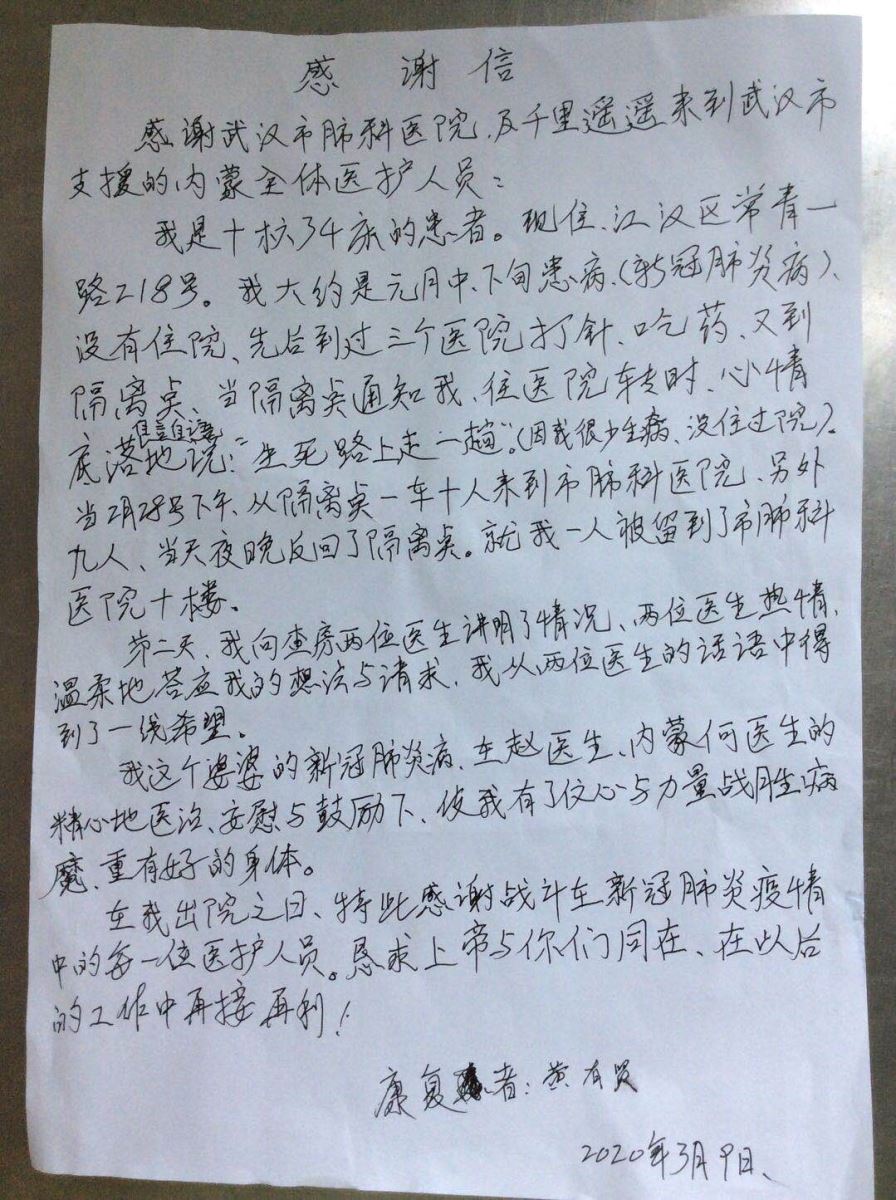 感谢信
感谢武汉市肺科医院、及千里遥遥来到武汉市
支援的内蒙全体医护人员：
我是十楼34床的患者。现住、江汉区常青一
路218号。我大约是元月中、下旬患病、(新冠肺炎病)、
没有住院、先后到过三个医院打针、吃药、又到
隔离点、当隔离点通知我、住医院转时、心情
底落地说：“生死路上走一趟”。(因我很少生病、没住过院)。
当2月28号下午、从隔离点一车十人来到市肺科医院、另外
九人、当天夜晚反回了隔离点。就我一人被留到了市肺科
医院十楼。
第二天、我向查房两位医生讲明了情况、两位医生热情、
温柔地答应我的想法与请求、我从两位医生的话语中得
到了一线希望。
我这个婆婆的新冠肺炎病、在赵医生、内蒙何医生的
精心地医治、安慰与鼓励下、使我有了信心与力量战胜病
魔、重有好的身体。
在我出院之日、特此感谢战斗在新冠肺炎疫情
中的每一位医护人员。恳求上帝与你们同在、在以后
的工作中再接再利！
康复者：黄有
2020年3月9日、